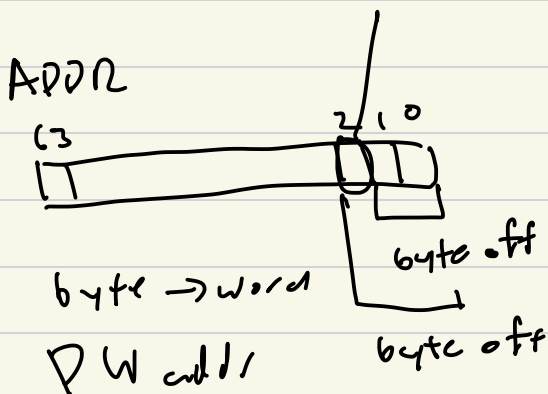 ADDR
63 2 1 0
byte off
byte → word
byte off
DW addr